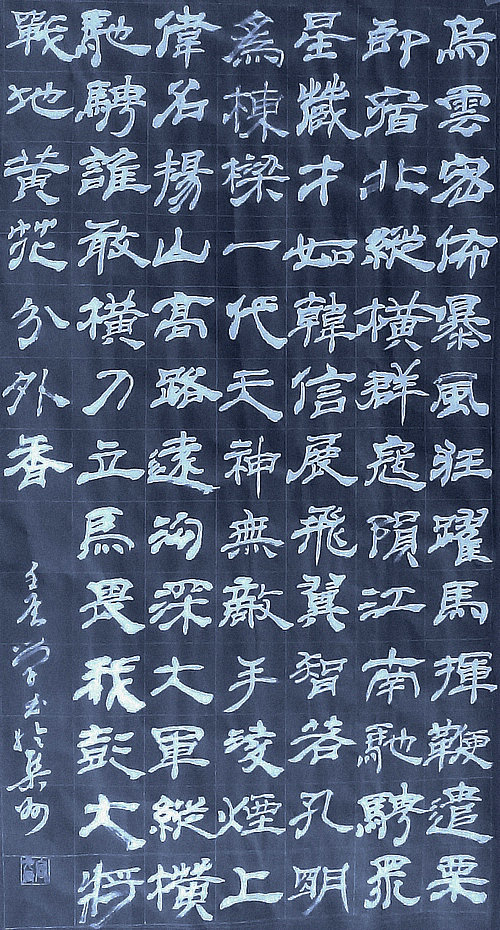 烏雲密佈暴風狂躍馬揮鞭遣粟
郎宿北縱橫群寇隕江南馳騁眾
星藏才如韓信展飛翼智若孔明
為棟樑一代天神無敵手凌煙上
偉名楊山高路遠溝深大軍縱橫
馳騁誰敢橫刀立馬畏我彭大將
戰地黃花分外香